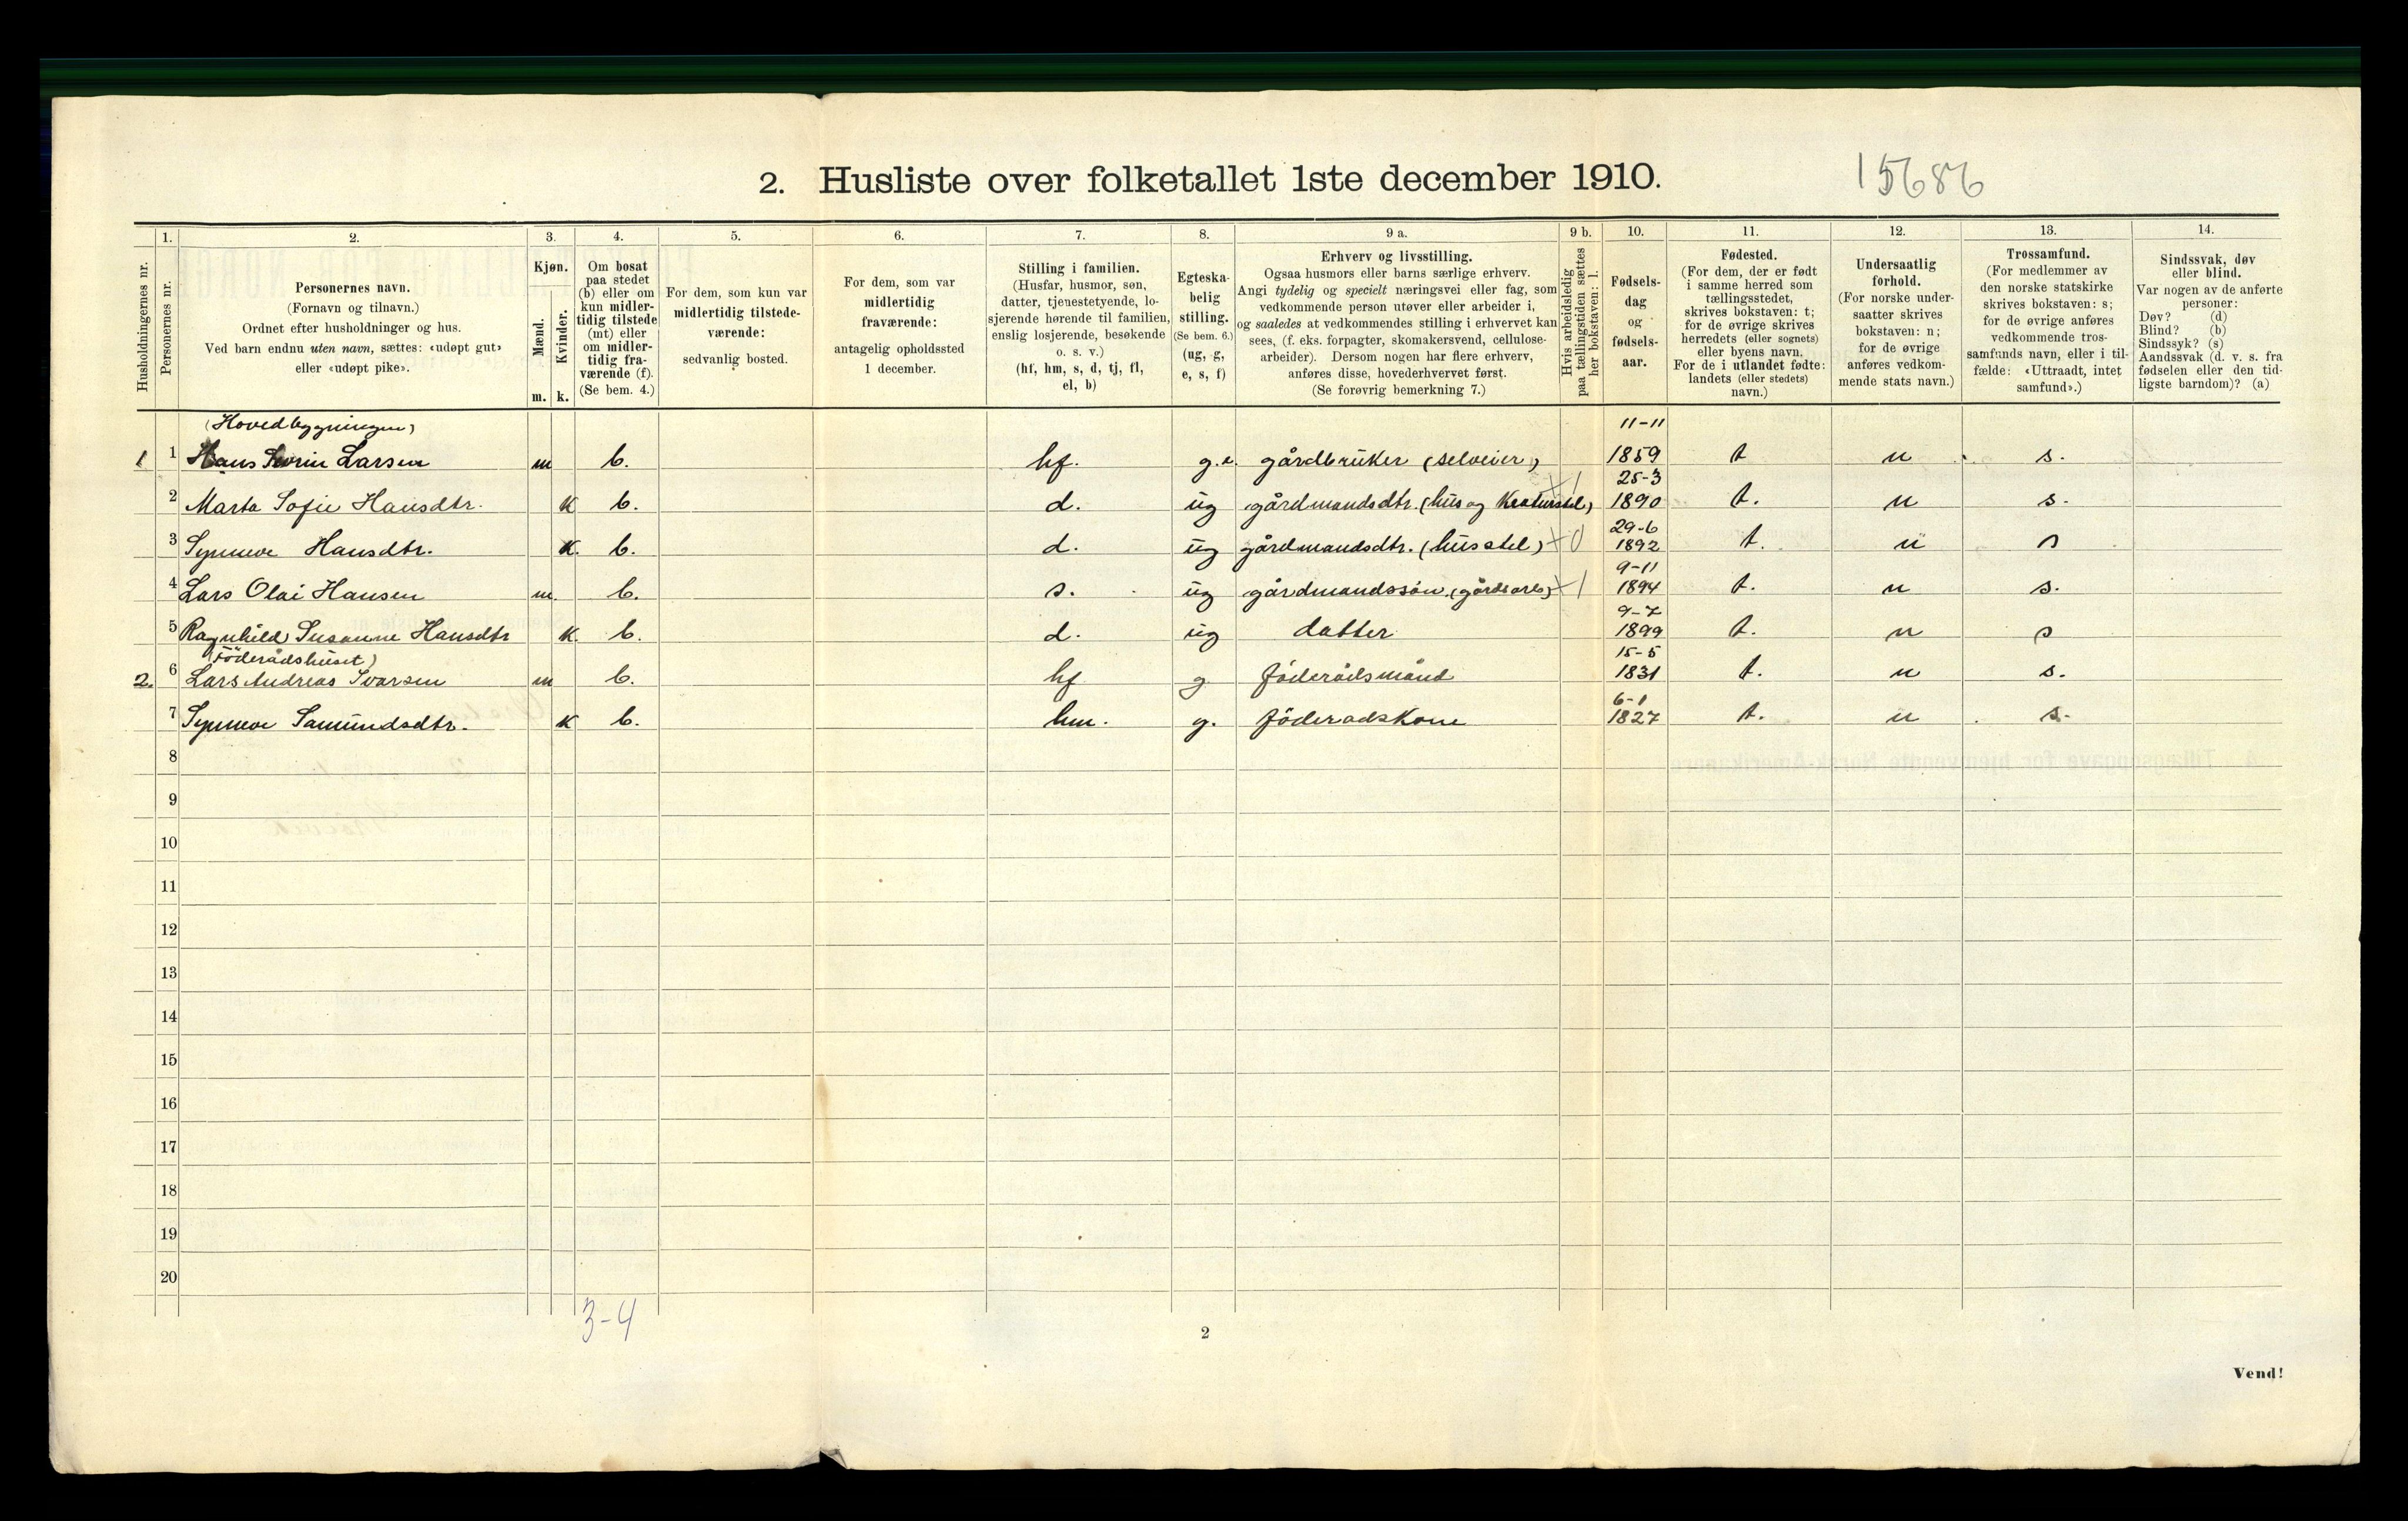 2. Husliste over folketallet 1ste december 1910.
15686
1. 2. 3. 4. 5. 6. 7. 8. 9 a. 9 b. 10. 11. 12. 13. 14.
Husholdningernes nr.
Personernes nr.
Personernes navn.
(Fornavn og tilnavn.)
Ordnet efter husholdninger og hus.
Ved barn endnu uten navn, sættes: «udøpt gut»
eller «udøpt pike».
Kjøn.
Mænd.
Kvinder.
m. k.
Om bosat
paa stedet
(b) eller om
kun midler-
tidig tilstede
(mt) eller
om midler-
tidig fra-
værende (f).
(Se bem. 4.)
For dem, som kun var
midlertidig tilstede-
værende:
sedvanlig bosted.
For dem, som var
midlertidig
fraværende:
antagelig opholdssted
1 december.
Stilling i familien.
(Husfar, husmor, søn,
datter, tjenestetyende, lo-
sjerende hørende til familien,
enslig losjerende, besøkende
o. s. v.)
(hf, hm, s, d, tj, fl,
el, b)
Egteska-
belig
stilling.
(Se bem. 6.)
(ug, g,
e, s, f)
Erhverv og livsstilling.
Ogsaa husmors eller barns særlige erhverv.
Angi tydelig og specielt næringsvei eller fag, som
vedkommende person utøver eller arbeider i,
og saaledes at vedkommendes stilling i erhvervet kan
sees, (f. eks. forpagter, skomakersvend, cellulose-
arbeider). Dersom nogen har flere erhverv,
anføres disse, hovederhvervet først.
(Se forøvrig bemerkning 7.)
Hvis arbeidsledig
paa tællingstiden sættes
her bokstaven: l.
Fødsels-
dag
og
fødsels-
aar.
Fødested.
(For dem, der er født
i samme herred som
tællingsstedet,
skrives bokstaven: t;
for de øvrige skrives
herredets (eller sognets)
eller byens navn.
For de i utlandet fødte:
landets (eller stedets)
navn.)
Undersaatlig
forhold.
(For norske under-
saatter skrives
bokstaven: n;
for de øvrige
anføres vedkom-
mende stats navn.)
Trossamfund.
(For medlemmer av
den norske statskirke
skrives bokstaven: s;
for de øvrige anføres
vedkommende tros-
samfunds navn, eller i til-
fælde: «Uttraadt, intet
samfund».)
Sindssvak, døv
eller blind.
Var nogen av de anførte
personer:
Døv? (d)
Blind? (b)
Sindssyk? (s)
Aandssvak (d. v. s. fra
fødselen eller den tid-
ligste barndom)? (a)
(Hovedbygningen) 11-11
1 1 Hans Larsen m b. hf. g.e. gårdbruker (selveier) 1859 t n s.
25-3
2 Marta Sofie Hansdtr. k b. d. ug gårdmandsdtr. (hus og Kreaturstel) 1890 t. n s.
29-6
3 Synneve Hansdtr. k. b. d. ug gårdmandsdtr. (husstel) 1892 t. n s
9-11
4 Lars Olai Hansen m. b. s. ug gårdmandssøn (gårdsarb) 1894 t. n s.
9-7
5 Ragnhild Susanne Hansdtr k. b. d. ug datter 1899 t. n s
(Föderådshuset) 15-5
2. 6 Lars Andreas Ivarsen m b. hf g föderådsmand 1831 t. n s.
6-1
7 Synneve Samundsdtr. k b. hm. g. föderadskone 1827 t. n s.
8
9
10
11
12
13
14
15
16
17
18
19
20
3-4
2
Vend!